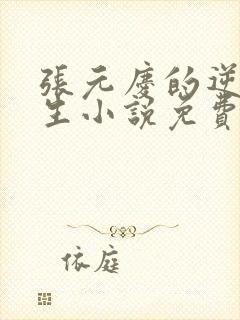 張元慶的逆
生小說免費
依庭